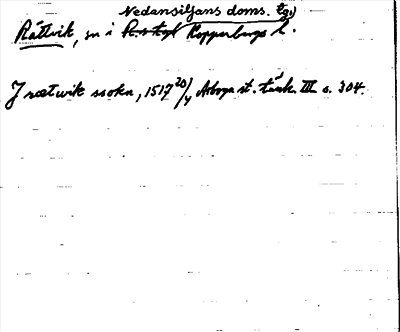 Nedansiljans doms. tgj
Rättvik, sn i Kopparbergs l.
J rætwik sokn, 1517 20/4 Arboga st. tänk. III s. 304.